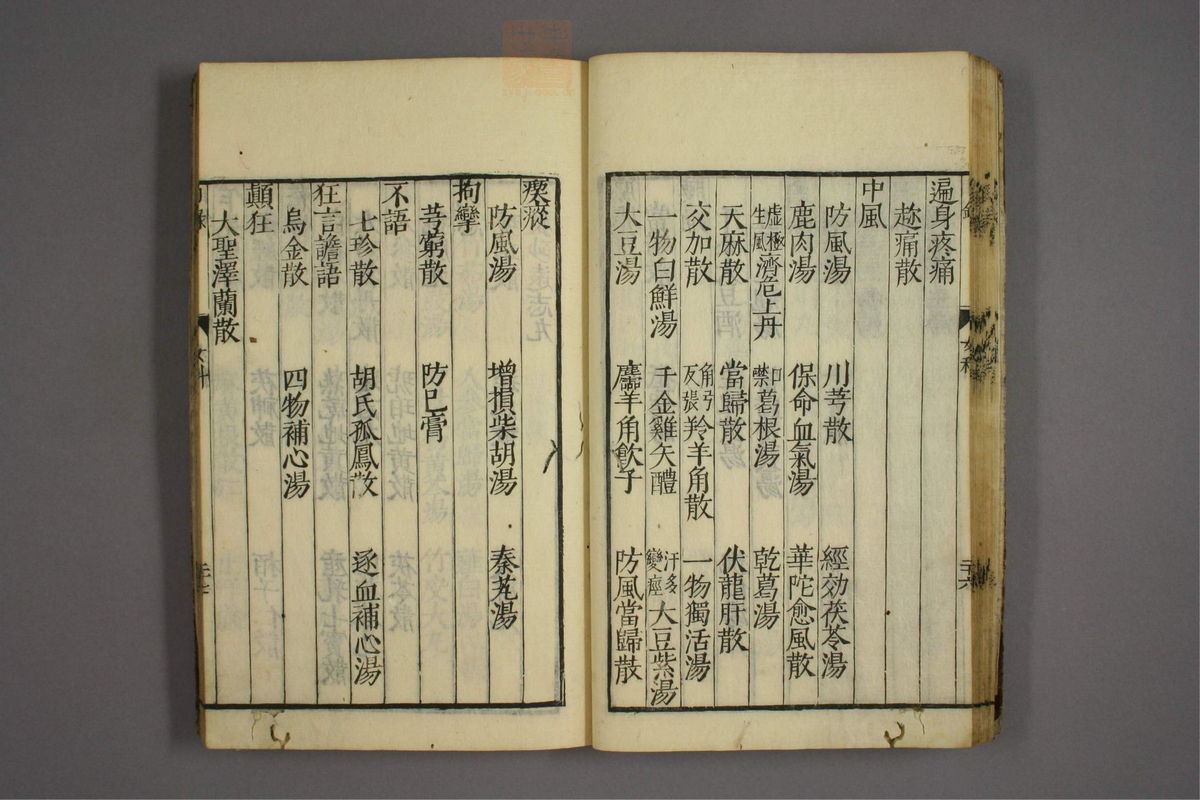 遍身疼痛
趂痛散
中風
防風湯 川芎散 經効茯苓湯
鹿肉湯 保命血氣湯 華陀愈風散
虛極生風濟危上丹 口噤葛根湯 乾葛湯
天麻散 當歸散 伏龍肝散
交加散 角弓反張羚羊角散 一物獨活湯
一物白鮮湯 千金雞矢醴 汗多變痙大豆紫湯
大豆湯 麞羊角飲子 防風當歸散
瘈瘲
防風湯 增損柴胡湯 秦艽湯
拘攣
芎藭散 防巳膏
不語
七珍散 胡氏孤鳳散 逐血補心湯
狂言譫語
烏金散 四物補心湯
顛狂
大聖澤蘭散